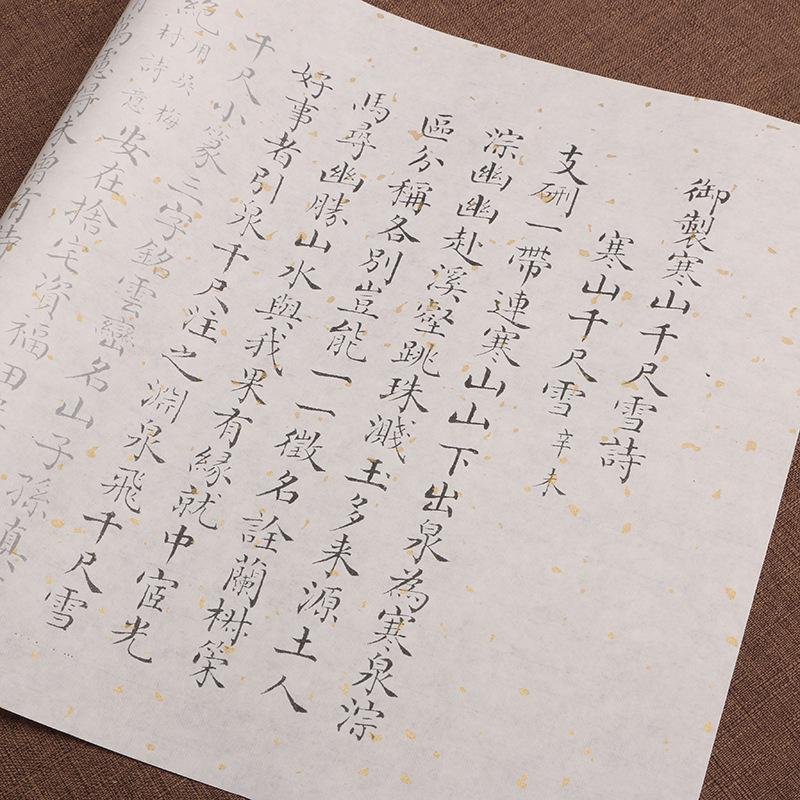 御製寒山千尺雪詩
寒山千尺雪辛未
支硎一帶連寒山山下出泉為寒泉淙
淙幽幽赴溪壑跳珠濺玉多来源土人
區分稱各別豈能一一徵名詮蘭樹築
馬尋幽勝山水與我果有緣就中宦光
好事者引泉千尺注之淵泉飛千尺雪
千尺小篆三字銘雲巒名山子孫真
絕用吳梅村詩意安在捨宅資福田
萬慮得未曾有